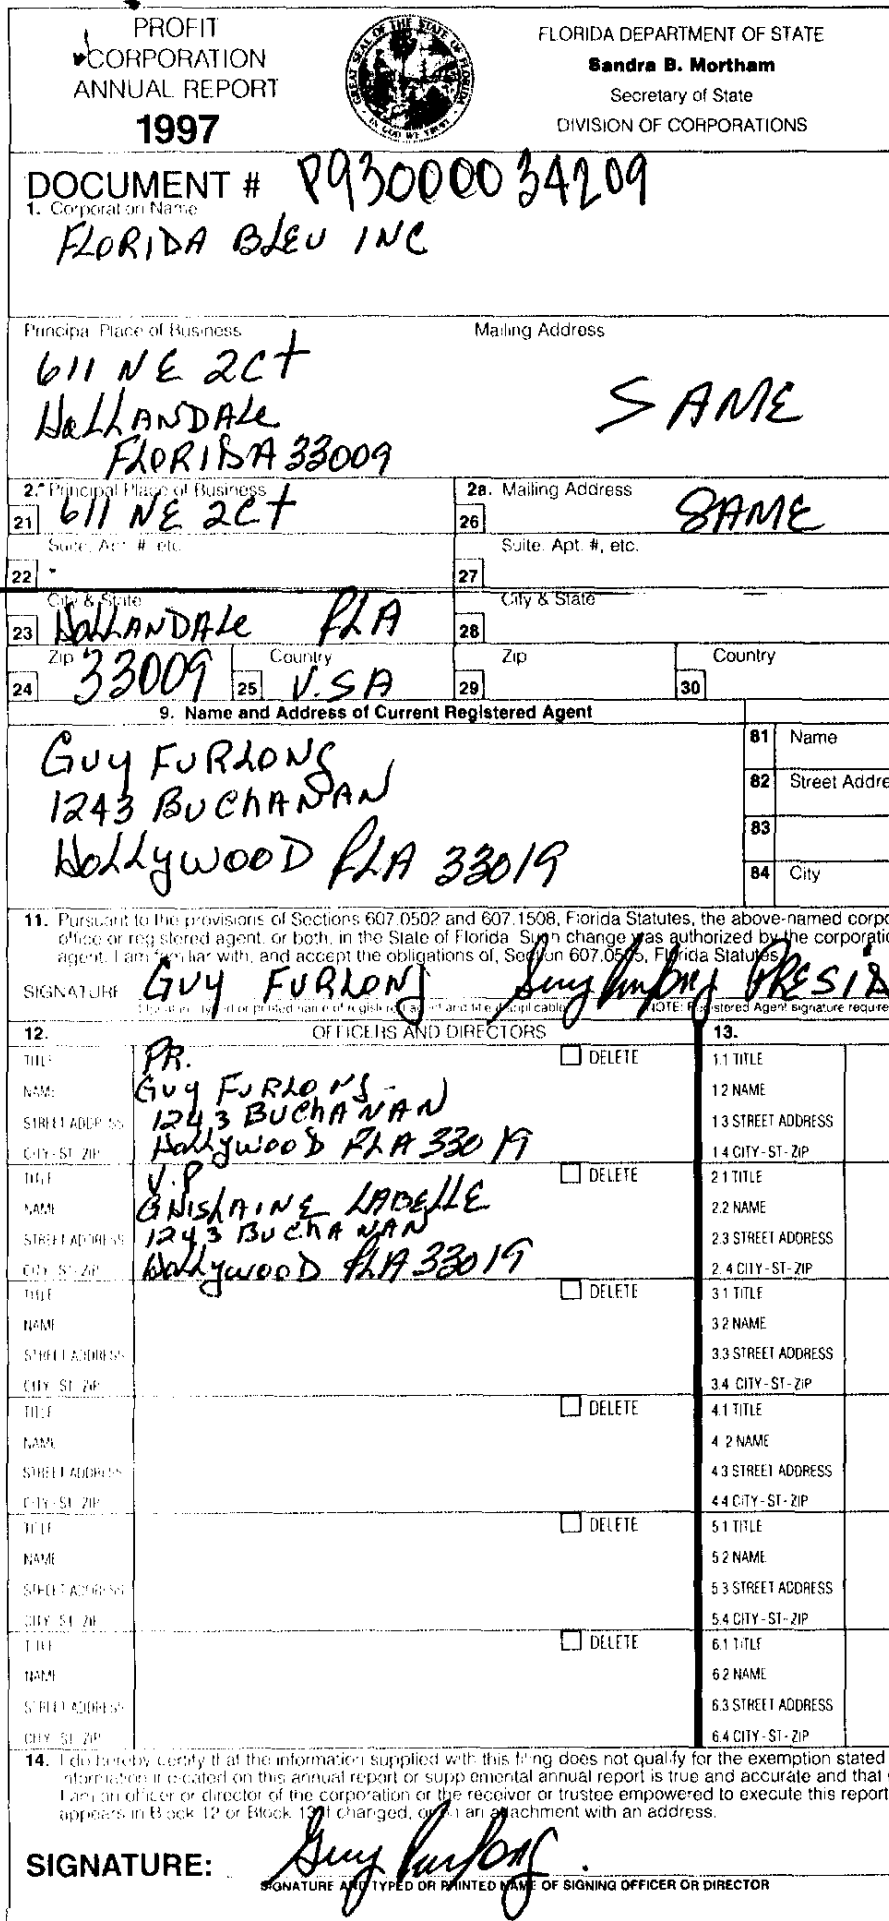 PROFIT
CORPORATION
ANNUAL REPORT
1997
GREAT SEAL OF THE STATE OF FLORIDA
IN GOD WE TRUST
FLORIDA DEPARTMENT OF STATE
Sandra B. Mortham
Secretary of State
DIVISION OF CORPORATIONS
DOCUMENT # P93000034209
1. Corporation Name
FLORIDA BLEU INC
Principal Place of Business
Mailing Address
611 NE 2Ct
HallANDALE
FLORIDA 33009
SAME
2. Principal Place of Business
2a. Mailing Address
21 611 NE 2Ct
26 SAME
Suite, Apt. #, etc.
Suite, Apt. #, etc.
22
27
City & State
City & State
23 HALLANDALE FLA
28
Zip
Country
Zip
Country
24 33009
25 U.SA
29
30
9. Name and Address of Current Registered Agent
GUY FURLONG
1243 BUCHANAN
HOLLYWOOD FLA 33019
81 Name
82 Street Addre
83
84 City
11. Pursuant to the provisions of Sections 607.0502 and 607.1508, Florida Statutes, the above-named corpo
office or registered agent, or both, in the State of Florida. Such change was authorized by the corporatio
agent. I am familiar with, and accept the obligations of, Section 607.0505, Florida Statutes.
SIGNATURE GUY FURLONG Guy Furlong PRESID
Signature, typed or printed name of registered agent and title if applicable
NOTE: Registered Agent signature require
12. OFFICERS AND DIRECTORS
13.
TITLE PR. DELETE
NAME GUY FURLONG
STREET ADDRESS 1243 BUCHANAN
CITY-ST-ZIP HOLLYWOOD FLA 33019
1.1 TITLE
1.2 NAME
1.3 STREET ADDRESS
1.4 CITY-ST-ZIP
TITLE V.P DELETE
NAME GHISLAINE LABELLE
STREET ADDRESS 1243 BUCHANAN
CITY-ST-ZIP HOLLYWOOD FLA 33019
2.1 TITLE
2.2 NAME
2.3 STREET ADDRESS
2.4 CITY-ST-ZIP
TITLE DELETE
NAME
STREET ADDRESS
CITY-ST-ZIP
3.1 TITLE
3.2 NAME
3.3 STREET ADDRESS
3.4 CITY-ST-ZIP
TITLE DELETE
NAME
STREET ADDRESS
CITY-ST-ZIP
4.1 TITLE
4.2 NAME
4.3 STREET ADDRESS
4.4 CITY-ST-ZIP
TITLE DELETE
NAME
STREET ADDRESS
CITY-ST-ZIP
5.1 TITLE
5.2 NAME
5.3 STREET ADDRESS
5.4 CITY-ST-ZIP
TITLE DELETE
NAME
STREET ADDRESS
CITY-ST-ZIP
6.1 TITLE
6.2 NAME
6.3 STREET ADDRESS
6.4 CITY-ST-ZIP
14. I do hereby certify that the information supplied with this filing does not qualify for the exemption stated
information indicated on this annual report or supplemental annual report is true and accurate and that
I am an officer or director of the corporation or the receiver or trustee empowered to execute this report
appears in Block 12 or Block 13 if changed, or on an attachment with an address.
SIGNATURE: Guy Furlong
SIGNATURE AND TYPED OR PRINTED NAME OF SIGNING OFFICER OR DIRECTOR